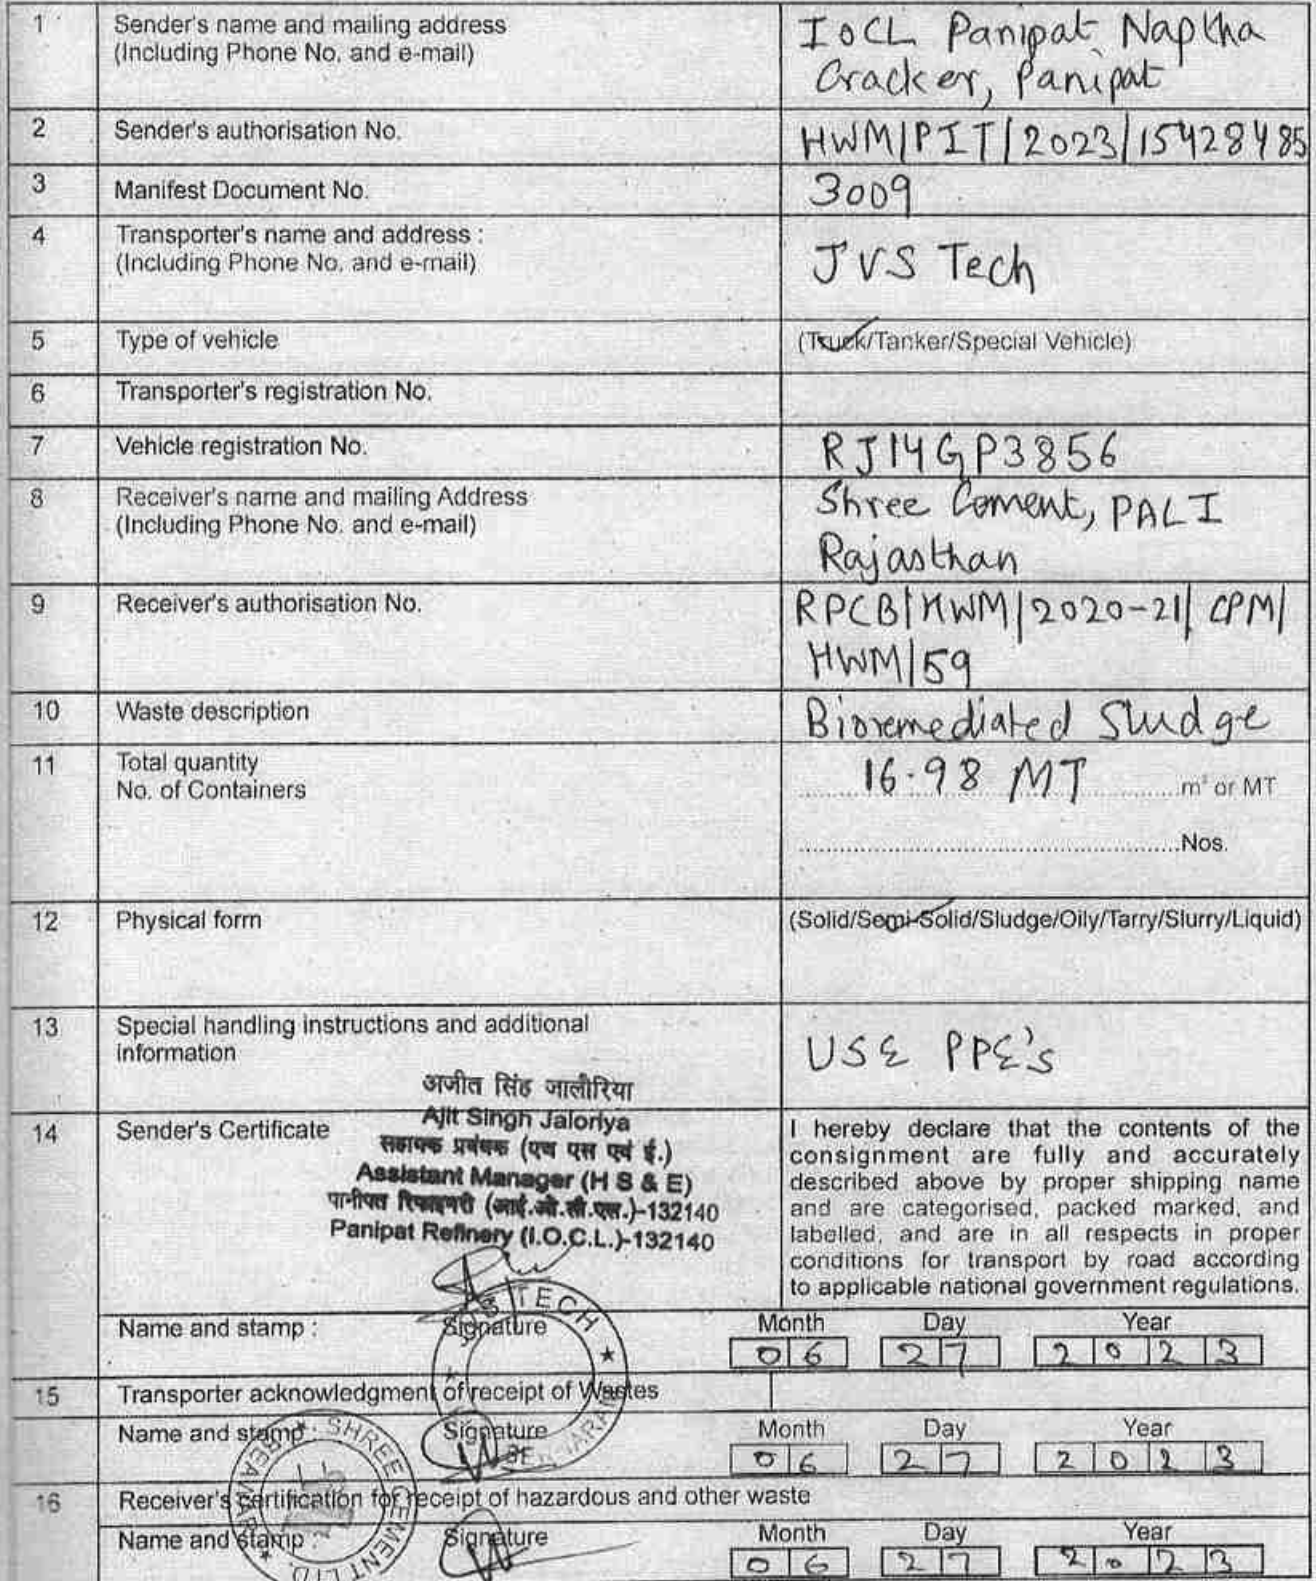 1 Sender's name and mailing address IOCL Panipat Naptha
(Including Phone No. and e-mail) Cracker, Panipat
2 Sender's authorisation No. HWM/PIT/2023/15428485
3 Manifest Document No. 3009
4 Transporter's name and address :
(Including Phone No. and e-mail) JVS Tech
5 Type of vehicle (Truck/Tanker/Special Vehicle)
6 Transporter's registration No.
7 Vehicle registration No. RJ14GP3856
8 Receiver's name and mailing Address Shree Cement, PALI
(Including Phone No. and e-mail) Rajasthan
9 Receiver's authorisation No. RPCB/HWM/2020-21/CPM/
HWM/59
10 Waste description Bioremediated Sludge
11 Total quantity 16.98 MT m³ or MT
No. of Containers
Nos.
12 Physical form (Solid/Semi-Solid/Sludge/Oily/Tarry/Slurry/Liquid)
13 Special handling instructions and additional
information USE PPE's
अजीत सिंह जालौरिया
Ajit Singh Jaloriya
सहायक प्रबंधक (एच एस एवं ई.)
Assistant Manager (H S & E)
पानीपत रिफाइनरी (आई.ओ.सी.एल.)-132140
Panipat Refinery (I.O.C.L.)-132140
14 Sender's Certificate
I hereby declare that the contents of the
consignment are fully and accurately
described above by proper shipping name
and are categorised, packed marked, and
labelled, and are in all respects in proper
conditions for transport by road according
to applicable national government regulations.
Name and stamp : Signature Month Day Year
06 27 2023
TECH
15 Transporter acknowledgment of receipt of Wastes
Name and stamp : Signature Month Day Year
06 27 2023
SHREE CEMENT LTD. BEAWAR
16 Receiver's certification for receipt of hazardous and other waste
Name and stamp : Signature Month Day Year
06 27 2023